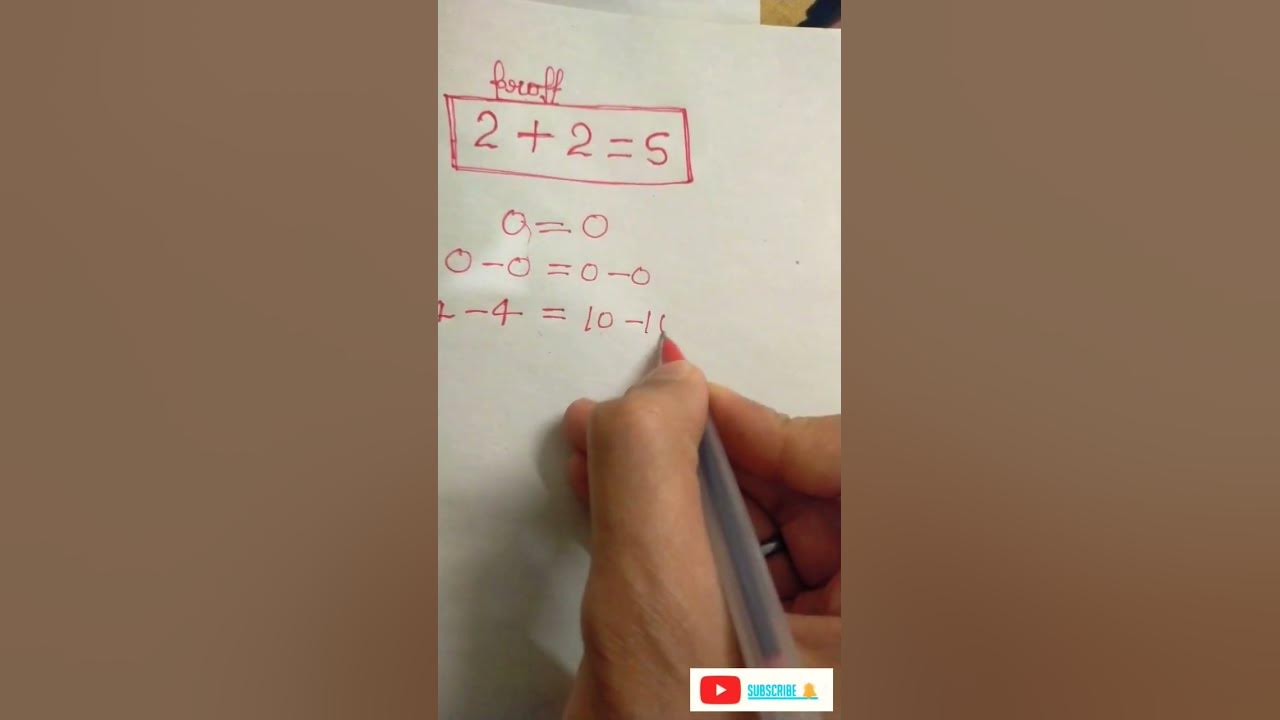 proff
2 + 2 = 5
0 = 0
0 - 0 = 0 - 0
- 4 = 10 - 1
SUBSCRIBE